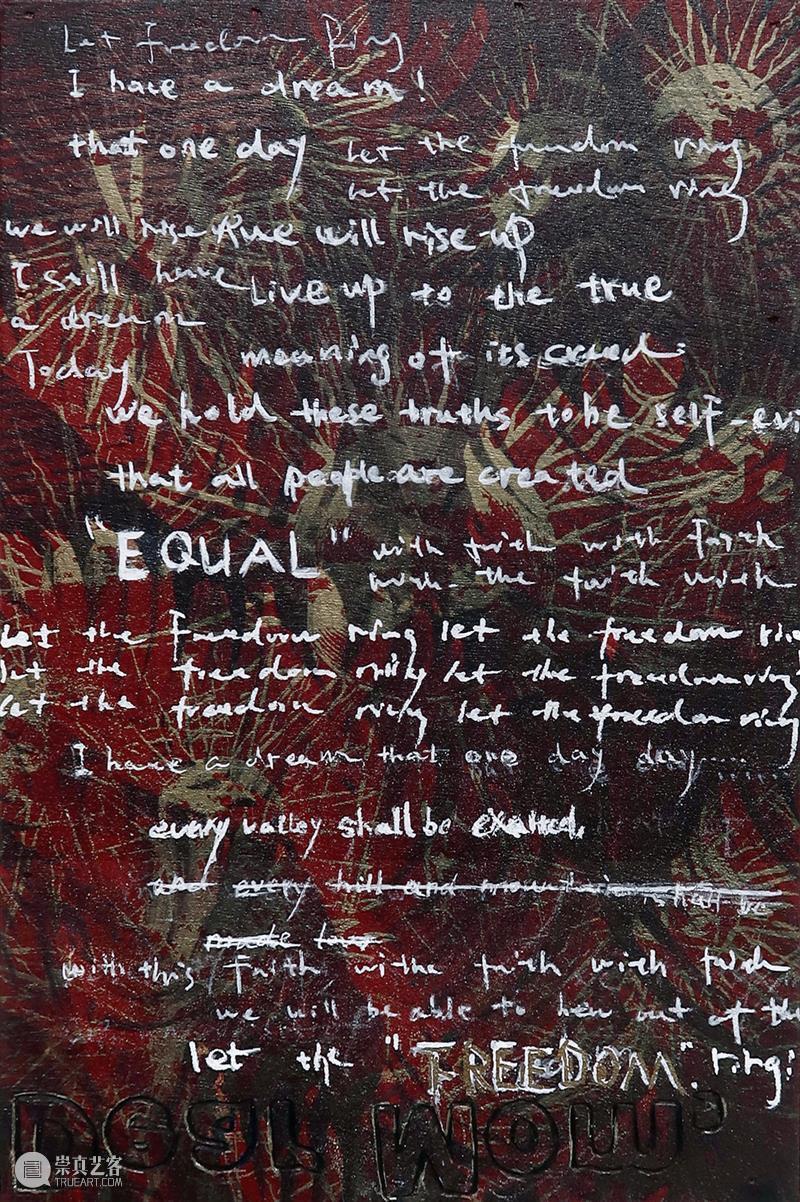 Let Freedom Ring!
I have a dream!
that one day let the freedom ring
let the freedom ring
we will rise we will rise up
I still have Live up to the true
a dream
Today meaning of its creed:
we hold these truths to be self-evi
that all people are created
"EQUAL" with faith with faith
with the faith with
Let the Freedom ring let the freedom ring
let the freedom ring let the freedom ring
let the freedom ring let the freedom ring
I have a dream that one day day......
every valley shall be exalted,
and every hill and mountain shall be
made low
with this faith with faith with faith
we will be able to hew out of the
let the "FREEDOM". ring!
崇真艺客
TRUEART.COM